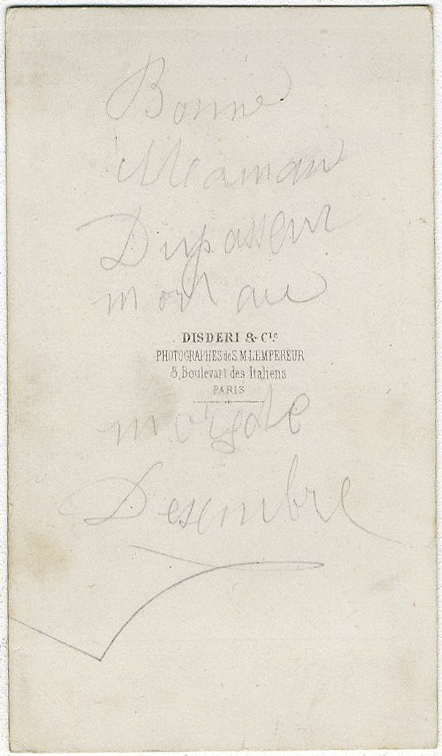 Bonne
Maman
Dupasseur
mort au
DISDERI & Cie
PHOTOGRAPHES de S.M. L'EMPEREUR
8, Boulevart des Italiens
PARIS
moi de
Desembre